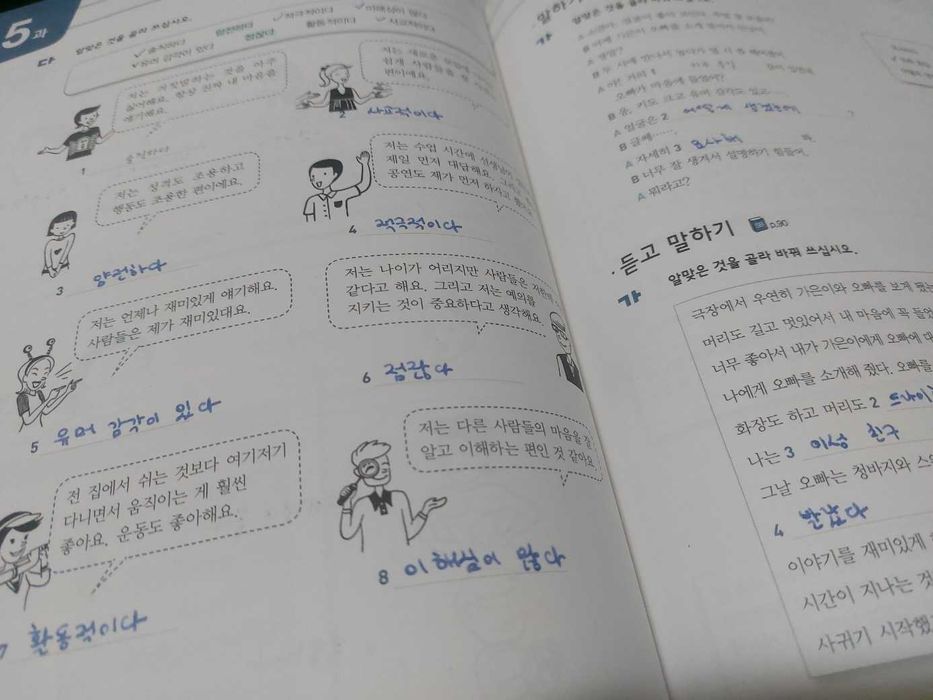 5과
다
알맞은 것을 골라 쓰십시오.
✓솔직하다 얌전하다 ✓적극적이다 ✓이해심이 많다
✓유머 감각이 있다 점잖다 활동적이다 ✓사교적이다
저는 거짓말하는 것을 아주
싫어해요. 항상 진짜 내 마음을
얘기해요.
1 솔직하다
저는 새로운
쉽게 사람들을
편이에요.
2 사교적이다
저는 성격도 조용하고
행동도 조용한 편이에요.
3 얌전하다
저는 수업 시간에 선생님이
제일 먼저 대답해요. 그리고
공연도 제가 먼저 하자고
4 적극적이다
저는 언제나 재미있게 얘기해요.
사람들은 제가 재미있대요.
5 유머 감각이 있다
저는 나이가 어리지만 사람들은
같다고 해요. 그리고 저는 예의를
지키는 것이 중요하다고 생각해요.
6 점잖다
전 집에서 쉬는 것보다 여기저기
다니면서 움직이는 게 훨씬
좋아요. 운동도 좋아해요.
7 활동적이다
저는 다른 사람들의 마음을 잘
알고 이해하는 편인 것 같아요.
8 이해심이 많다
말하기
알맞은 것을 골라
가
A 아! 저희 1
오빠가 마음에 들었어?
B 응. 키도 크고 유머 감각도 있고……
A 얼굴은 2 어떻게 생겼는데 ?
B 글쎄……
A 자세히 3
B 너무 잘 생겨서 설명하기 힘들어.
A 뭐라고?
듣고 말하기 p.90
가
알맞은 것을 골라 바꿔 쓰십시오.
극장에서 우연히 가은이와 오빠를 보게 됐는
머리도 길고 멋있어서 내 마음에 꼭 들었
너무 좋아서 내가 가은이에게 오빠에 대
나에게 오빠를 소개해 줬다. 오빠를
화장도 하고 머리도 2 드라이
나는 3 이상 친구
그날 오빠는 청바지와
4 반했다
이야기를 재미있게
시간이 지나는 것
사귀기 시작했